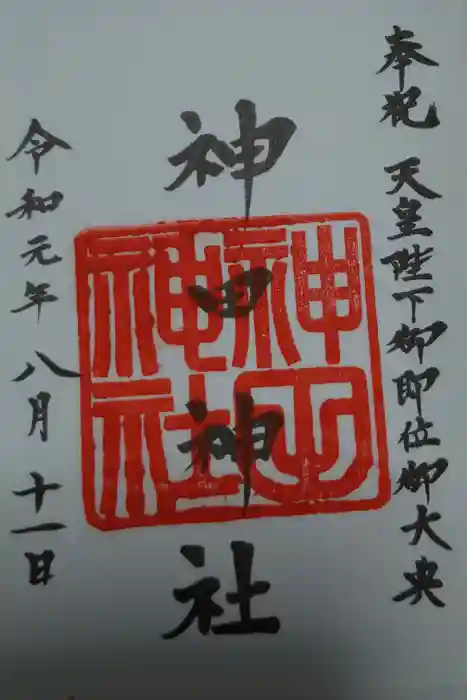 奉祝 天皇陛下御即位御大典
神田神社
神田神社
令和元年八月十一日